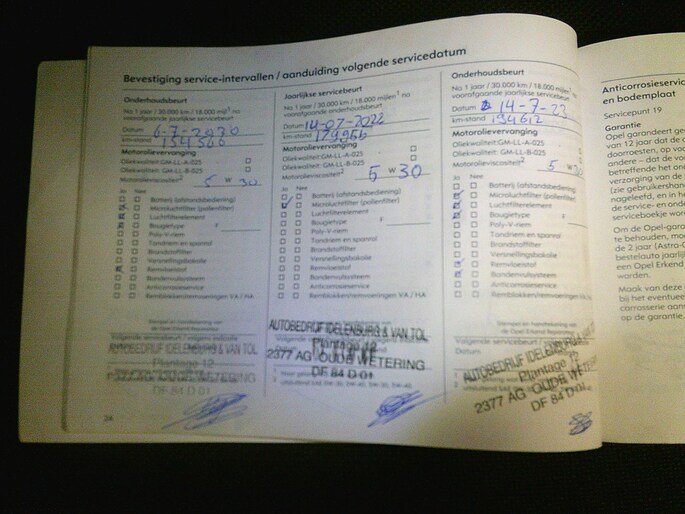 Bevestiging service-intervallen / aanduiding volgende servicedatum
Onderhoudsbeurt
No 1 jaar / 30.000 km / 18.000 mijl na
voorafgaande onderhoudsbeurt
Datum 6-7-2020
km-stand 154566
Motorolievervanging
Oliekwaliteit: GM-LL-A-025
Oliekwaliteit: GM-LL-B-025
Motorolieviscositeit2 5 W 30
Ja Nee
Batterij (afstandsbediening)
Microluchtfilter (pollenfilter)
Luchtfilterelement
Bougietype F
Poly-V-riem
Tandriem en spanrol
Brandstoffilter
Versnellingsbakolie
Remvloeistof
Bandenmuilsysteem
Anticorrosieservice
Remblokken/remvoeringen VA / HA
AUTOBEDRIJF IDELENBURG & VAN TOL
Plantage 12
2377 AG OUDE WETERING
DF 84 D 01
24
Jaarlijkse servicebeurt
No 1 jaar / 30.000 km / 18.000 mijlen1 na
voorafgaande servicebeurt
Datum 14-07-2022
km-stand 179956
Motorolievervanging
Oliekwaliteit: GM-LL-A-025
Oliekwaliteit: GM-LL-B-025
Motorolieviscositeit2 5 W 30
Ja Nee
Batterij (afstandsbediening)
Microluchtfilter (pollenfilter)
Luchtfilterelement
Bougietype F
Poly-V-riem
Tandriem en spanrol
Brandstoffilter
Versnellingsbakolie
Remvloeistof
Anticorrosieservice
Remblokken/remvoeringen VA / HA
AUTOBEDRIJF IDELENBURG & VAN TOL
Plantage 12
2377 AG OUDE WETERING
DF 84 D 01
Onderhoudsbeurt
No 1 jaar / 30.000 km / 18.000 mijlen1 na
voorafgaande servicebeurt
Datum 14-7-23
km-stand 194612
Motorolievervanging
Oliekwaliteit: GM-LL-A-025
Oliekwaliteit: GM-LL-B-025
Motorolieviscositeit2 5 W 30
Ja Nee
Batterij (afstandsbediening)
Microluchtfilter (pollenfilter)
Luchtfilterelement
Bougietype F
Poly-V-riem
Tandriem en spanrol
Brandstoffilter
Versnellingsbakolie
Remvloeistof
Anticorrosieservice
Remblokken/remvoeringen VA / HA
Datum
AUTOBEDRIJF IDELENBURG
Plantage 12
2377 AG OUDE WETE
DF 84 D 01
Anticorrosieservic
en bodemplaat
Servicepunt 19
Garantie
Opel garandeert ge
van 12 jaar dat de c
doorroesten, op voo
andere – dat de vo
betreffende het ond
verzorging van de
(zie gebruikershand
nageleefd, en in he
de service- en onde
serviceboekje wor
Om de Opel-garan
te behouden, moe
de 2 jaar (Astra-C
bestelauto jaarlijk
een Opel Erkend
worden
Maak van deze
bij het eventuee
carrosserie aan
op de garantie.